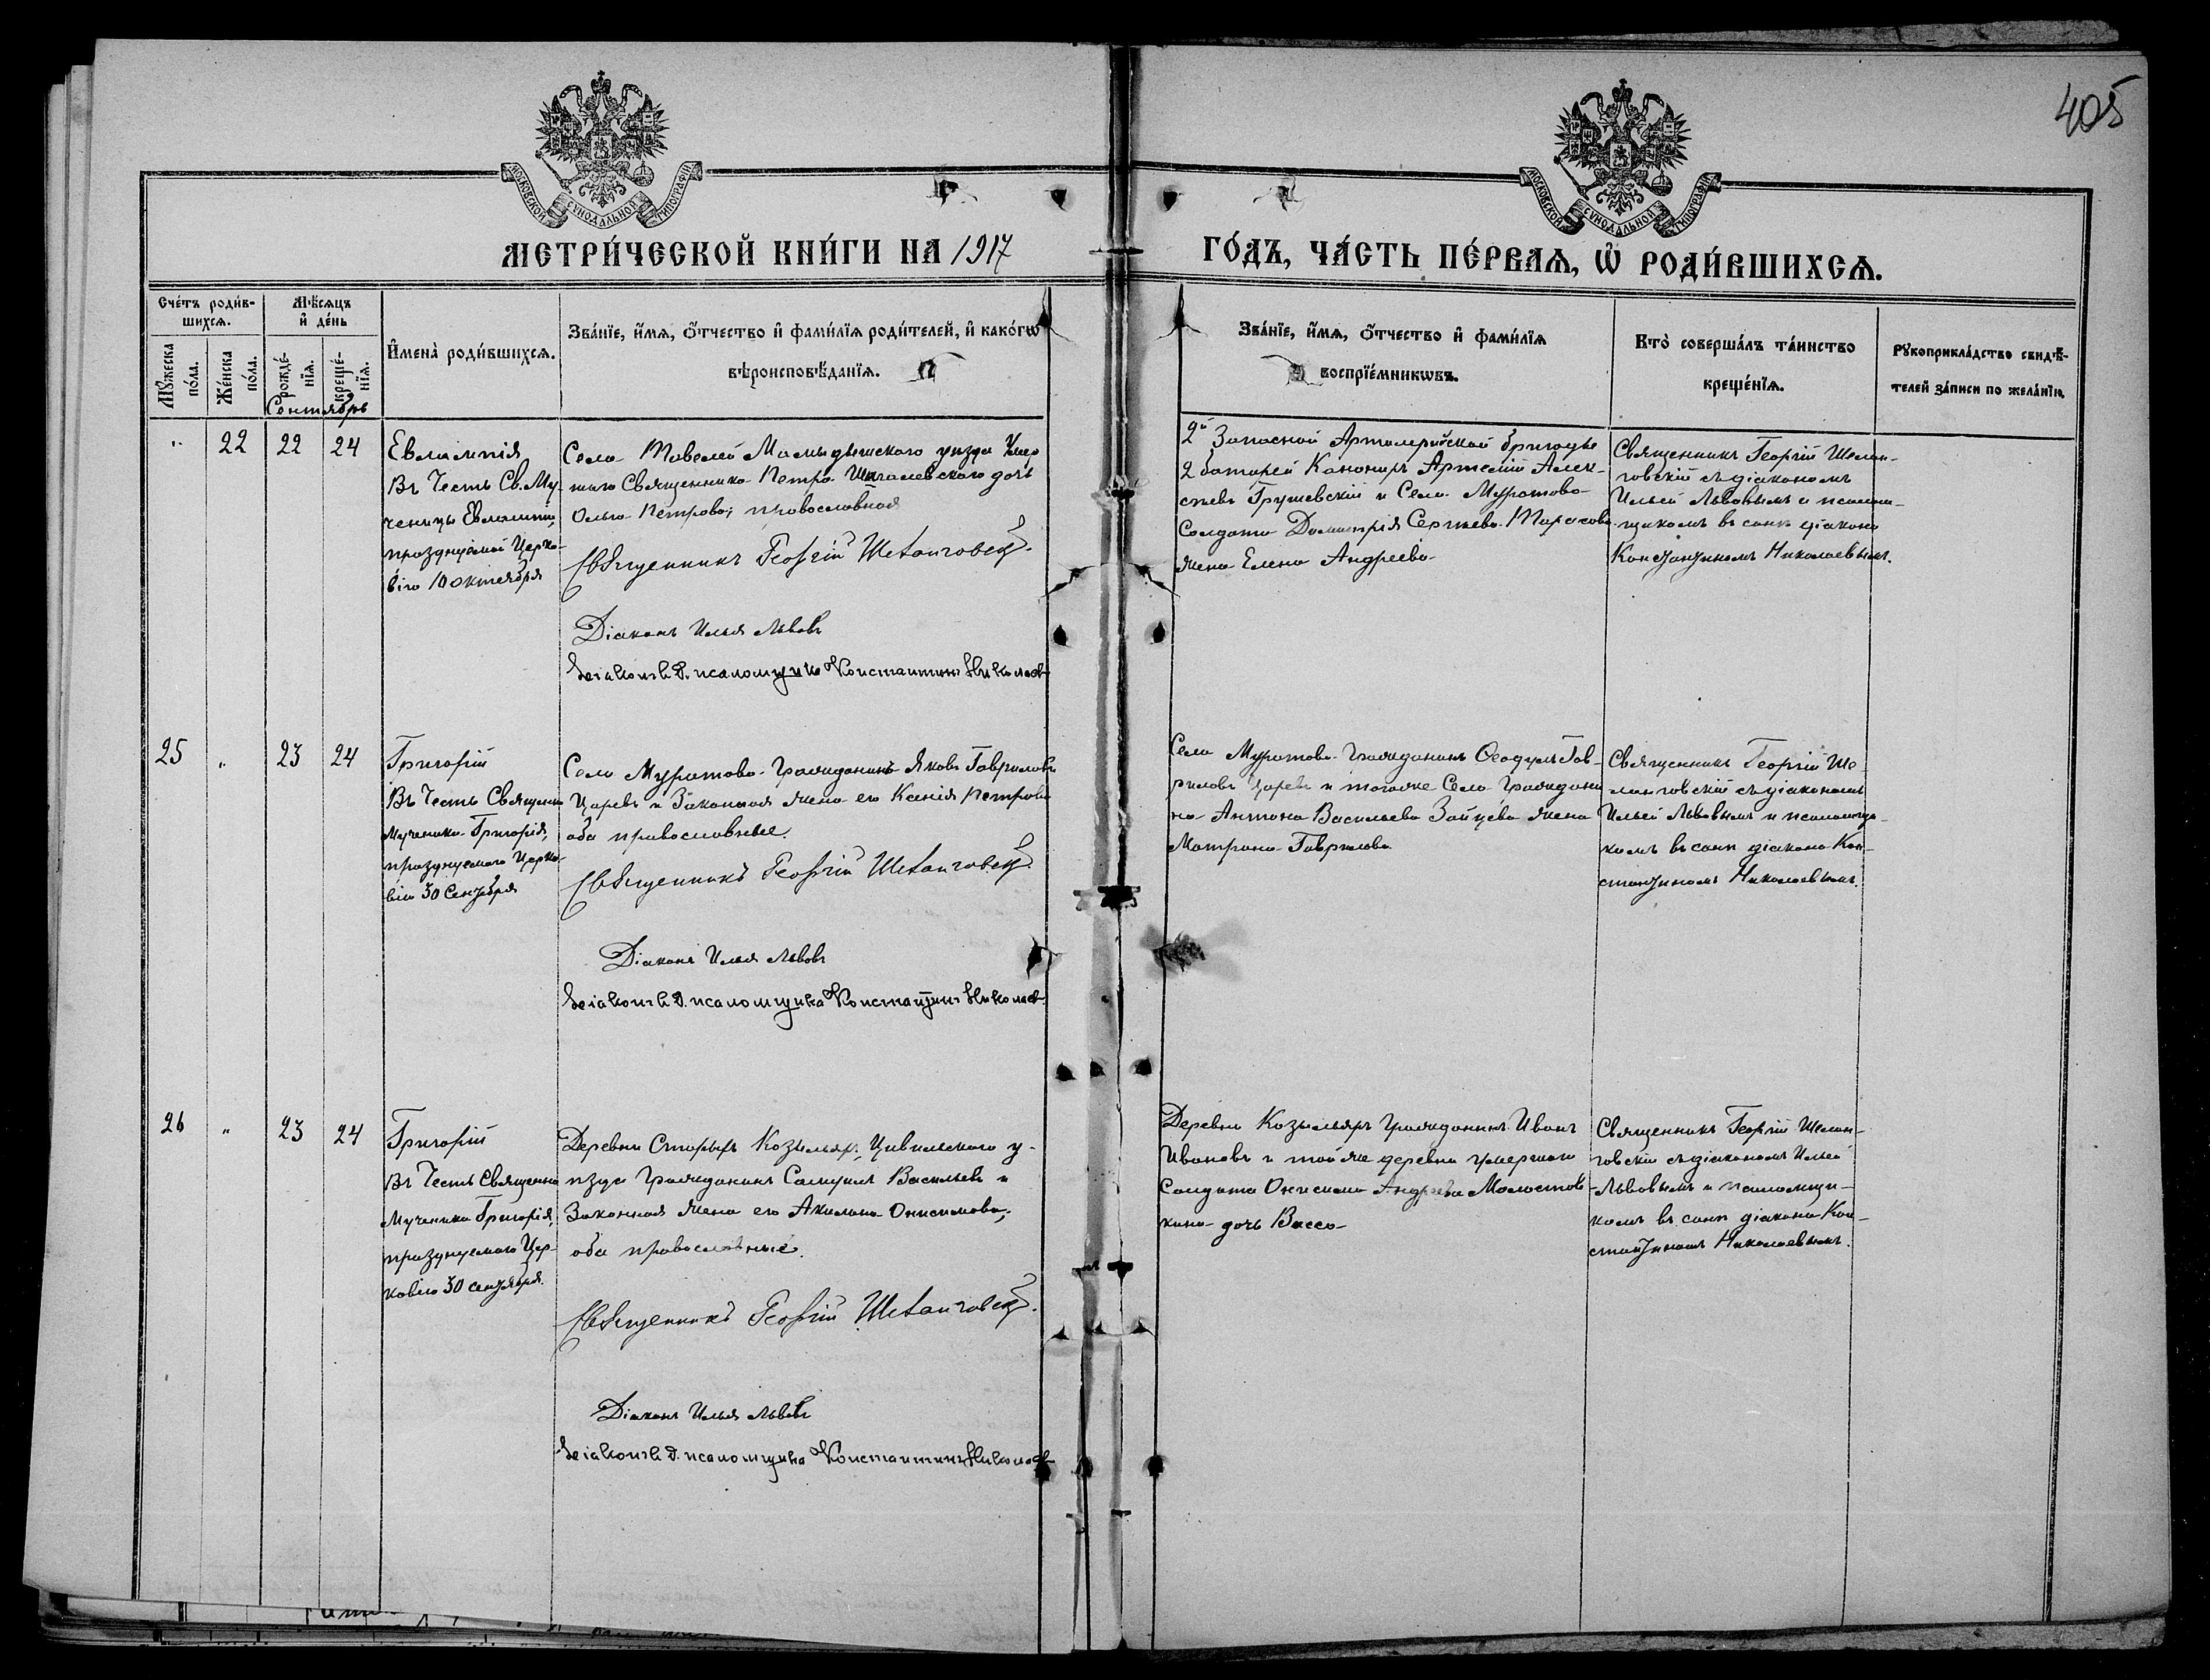 405
МОСКОВСКОЙ СУНОДАЛЬНОЙ ТИПОГРАФІИ
МОСКОВСКОЙ СУНОДАЛЬНОЙ ТИПОГРАФІИ
МЕТРИ́ЧЕСКОЙ КНИ́ГИ НА 1917
ГО́ДЪ, ЧА́СТЬ ПЕ́РВАѦ, Ѡ҆ РОДИ́ВШИХСѦ.
Сче́тъ роди́в-
шихсѧ.
Мѣ́сѧцъ
и҆ де́нь
Мꙋ́жеска
по́ла.
Же́нска
по́ла.
рожде́-
нїѧ.
креще́-
нїѧ.
Сентябрь
И҆мена̀ роди́вшихсѧ.
Зва́нїе, и҆́мѧ, ѻ҆́тчество и҆ фами́лїѧ роди́телей, и҆ како́гѡ
вѣроисповѣ́данїѧ.
Зва́нїе, и҆́мѧ, ѻ҆́тчество и҆ фами́лїѧ
воспрїе́мникѡвъ.
Кто̀ соверша́лъ та́инство
креще́нїѧ.
Рꙋкоприкла́дство свидѣ́-
телей за́писи по жела́нїю.
" 22 22 24
Евлампія
Въ Честь Св. Му-
ченицы Евлампіи,
празднуемой Церко-
вію 10 октября
Села Мамадышского уѣзда Умер
шаго Священника Петра дочь
Ольга Петрова, православная
Священникъ Георгій Шеланговскій.
Діаконъ Илья Львовъ
Діаконъ н. д. псаломщика Константинъ Николаевъ
2й Запасной Артилерійской бригады
2 батареи Канониръ Артемій Алек-
сѣевъ Грушевскій и Села Муратова
Солдата Димитрія Сергѣева Тарасова
жена Елена Андреева
Священникъ Георгій Шелан-
говскій съ діакономъ
Ильей Львовымъ и псалом-
щикомъ въ санѣ діакона
Константиномъ Николаевымъ.
25 " 23 24
Григорій
Въ Честь Священно
Мученика Григорія,
празднуемаго Церко-
вію 30 Сентября
Села Муратова Гражданинъ Яковъ Гавриловъ
Царевъ и Законная жена его Ксенія Петрова
оба православные.
Священникъ Георгій Шеланговскій.
Діаконъ Илья Львовъ
Діаконъ н. д. псаломщика Константинъ Николаевъ
Села Муратова Гражданинъ Ѳеодулъ Гав-
риловъ Царевъ и тогоже Села Граждани
на Антона Васильева Зайцева жена
Матрона Гаврилова
Священникъ Георгій Ше-
ланговскій съ діакономъ
Ильей Львовымъ и псаломщи-
комъ въ санѣ діакона Кон-
стантиномъ Николаевымъ.
26 " 23 24
Григорій
Въ Честь Священно
Мученика Григорія,
празднуемаго Цер-
ковію 30 сентября.
Деревни Старыхъ Козыльяръ, Цивильскаго у-
ѣзда Гражданинъ Самуилъ Васильевъ и
Законная жена его Акилина Онисимова,
оба православные.
Священникъ Георгій Шеланговскій.
Діаконъ Илья Львовъ
Діаконъ н. д. псаломщика Константинъ Николаевъ
Деревни Козыльяръ Гражданинъ Иванъ
Ивановъ и той же деревни умершаго
Солдата Онисима Андреева Молостов-
кина дочь Васса
Священникъ Георгій Шелан-
говскій съ діакономъ Ильей
Львовымъ и псаломщи-
комъ въ санѣ діакона Кон-
стантиномъ Николаевымъ.